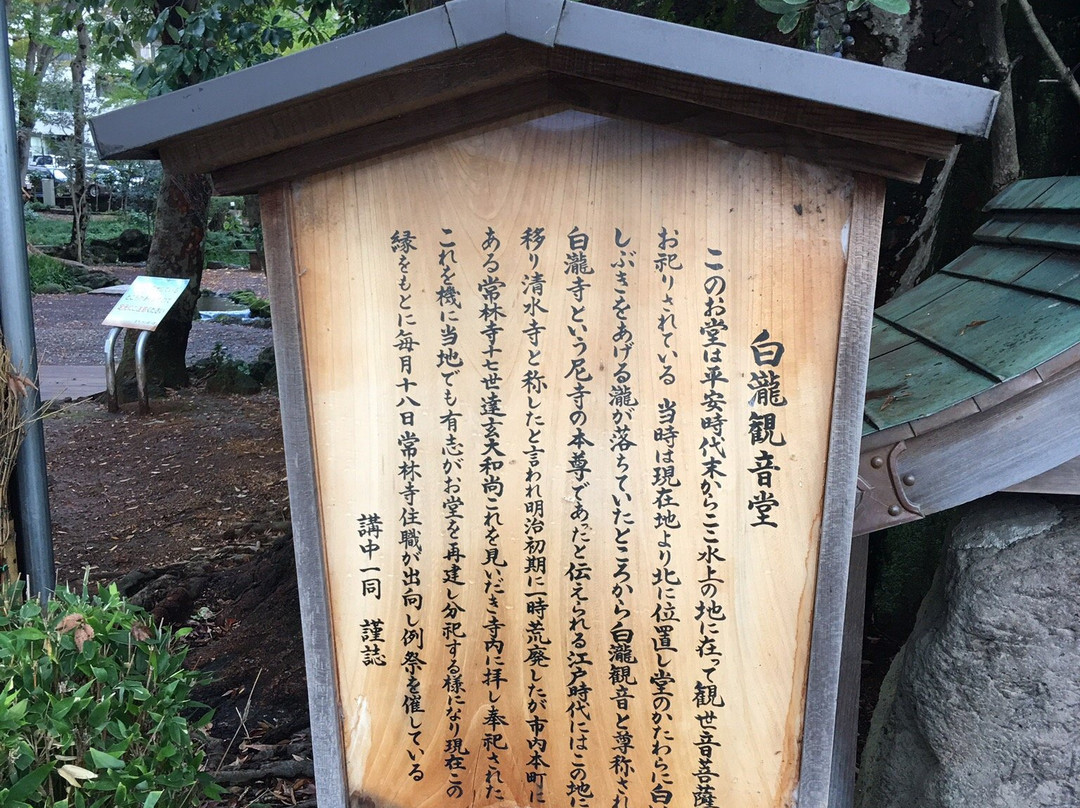 白瀧観音堂
このお堂は平安時代末からここ水上の地に在って観世音菩薩
お祀りされている 当時は現在地より北に位置し堂のかたわらに白
しぶきをあげる瀧が落ちていたところから白瀧観音と尊称され
白瀧寺という尼寺の本尊であったと伝えられる江戸時代にはこの地に
移り清水寺と称したと言われ明治初期に一時荒廃したが市内本町に
ある常林寺十七世達玄大和尚これを見いだき寺内に拝し奉祀された
これを機に当地でも有志がお堂を再建し分祀する様になり現在この
縁をもとに毎月十八日常林寺住職が出向し例祭を催している
講中一同 謹誌